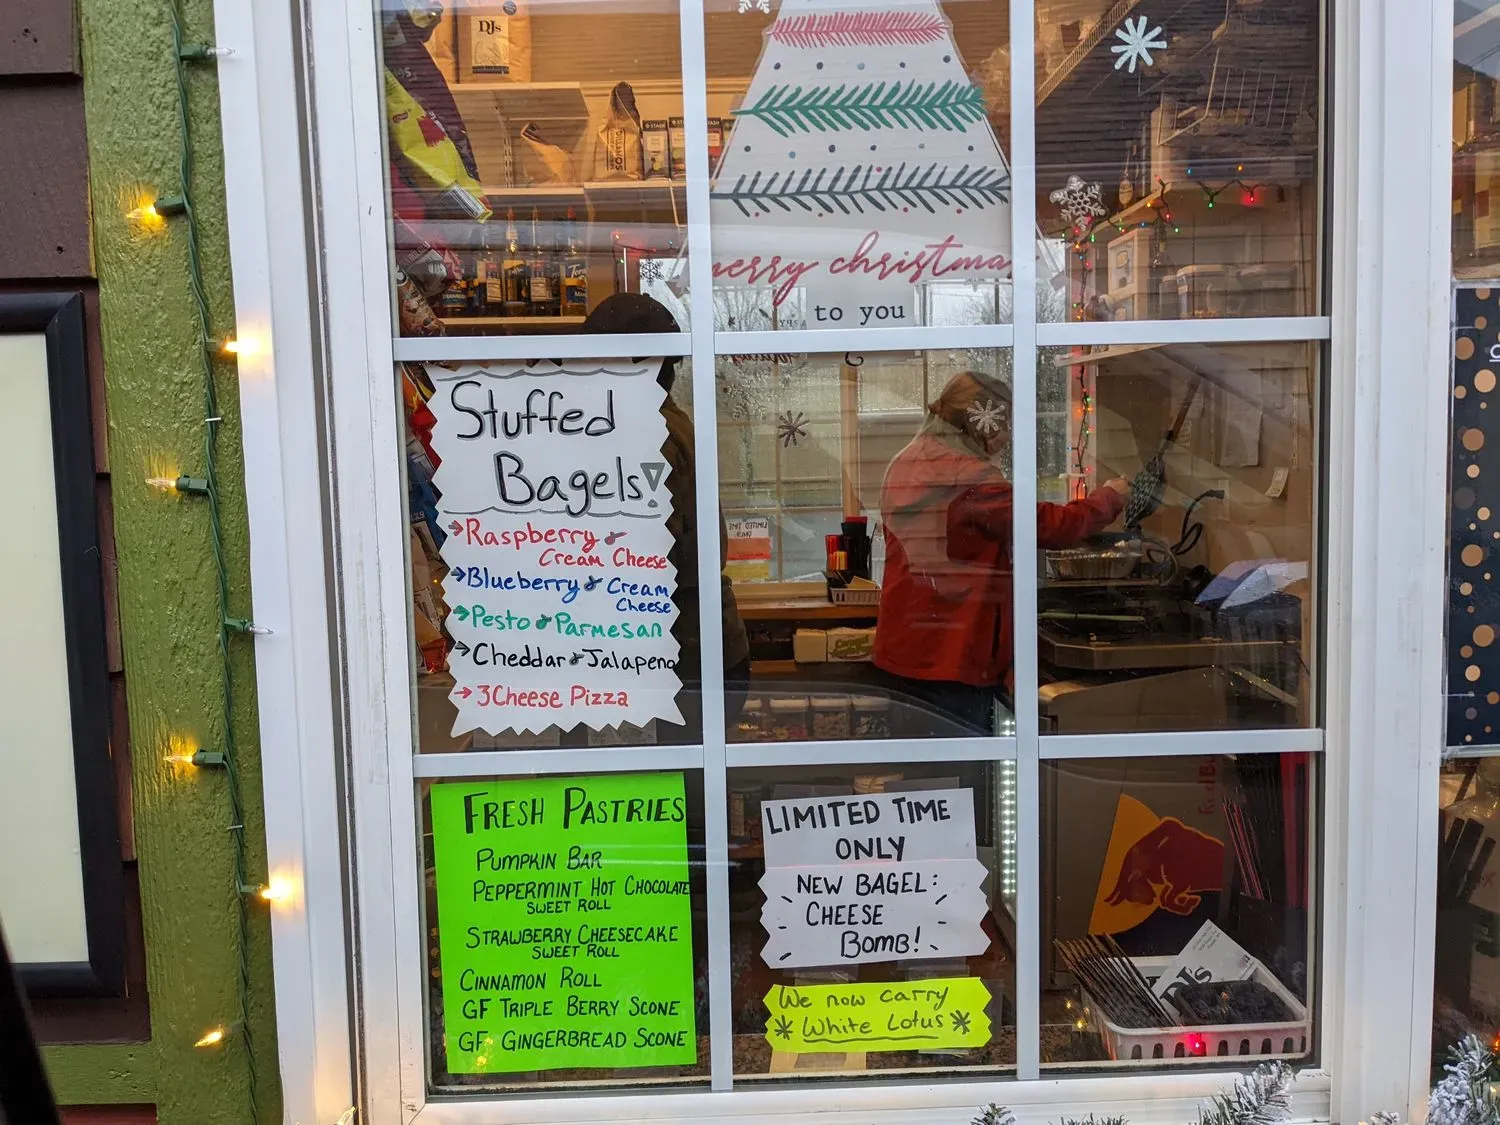 DJs
STASH
merry christmas
to you
Stuffed
Bagels!
→Raspberry &
Cream Cheese
→Blueberry & Cream
Cheese
→Pesto & Parmesan
→Cheddar & Jalapeno
→3 Cheese Pizza
LIMITED TIME
ONLY
FRESH PASTRIES
PUMPKIN BAR
PEPPERMINT HOT CHOCOLATE
SWEET ROLL
STRAWBERRY CHEESECAKE
SWEET ROLL
CINNAMON ROLL
GF TRIPLE BERRY SCONE
GF GINGERBREAD SCONE
LIMITED TIME
ONLY
NEW BAGEL:
CHEESE
BOMB!
We now carry
* White Lotus *
Red Bu
DJs